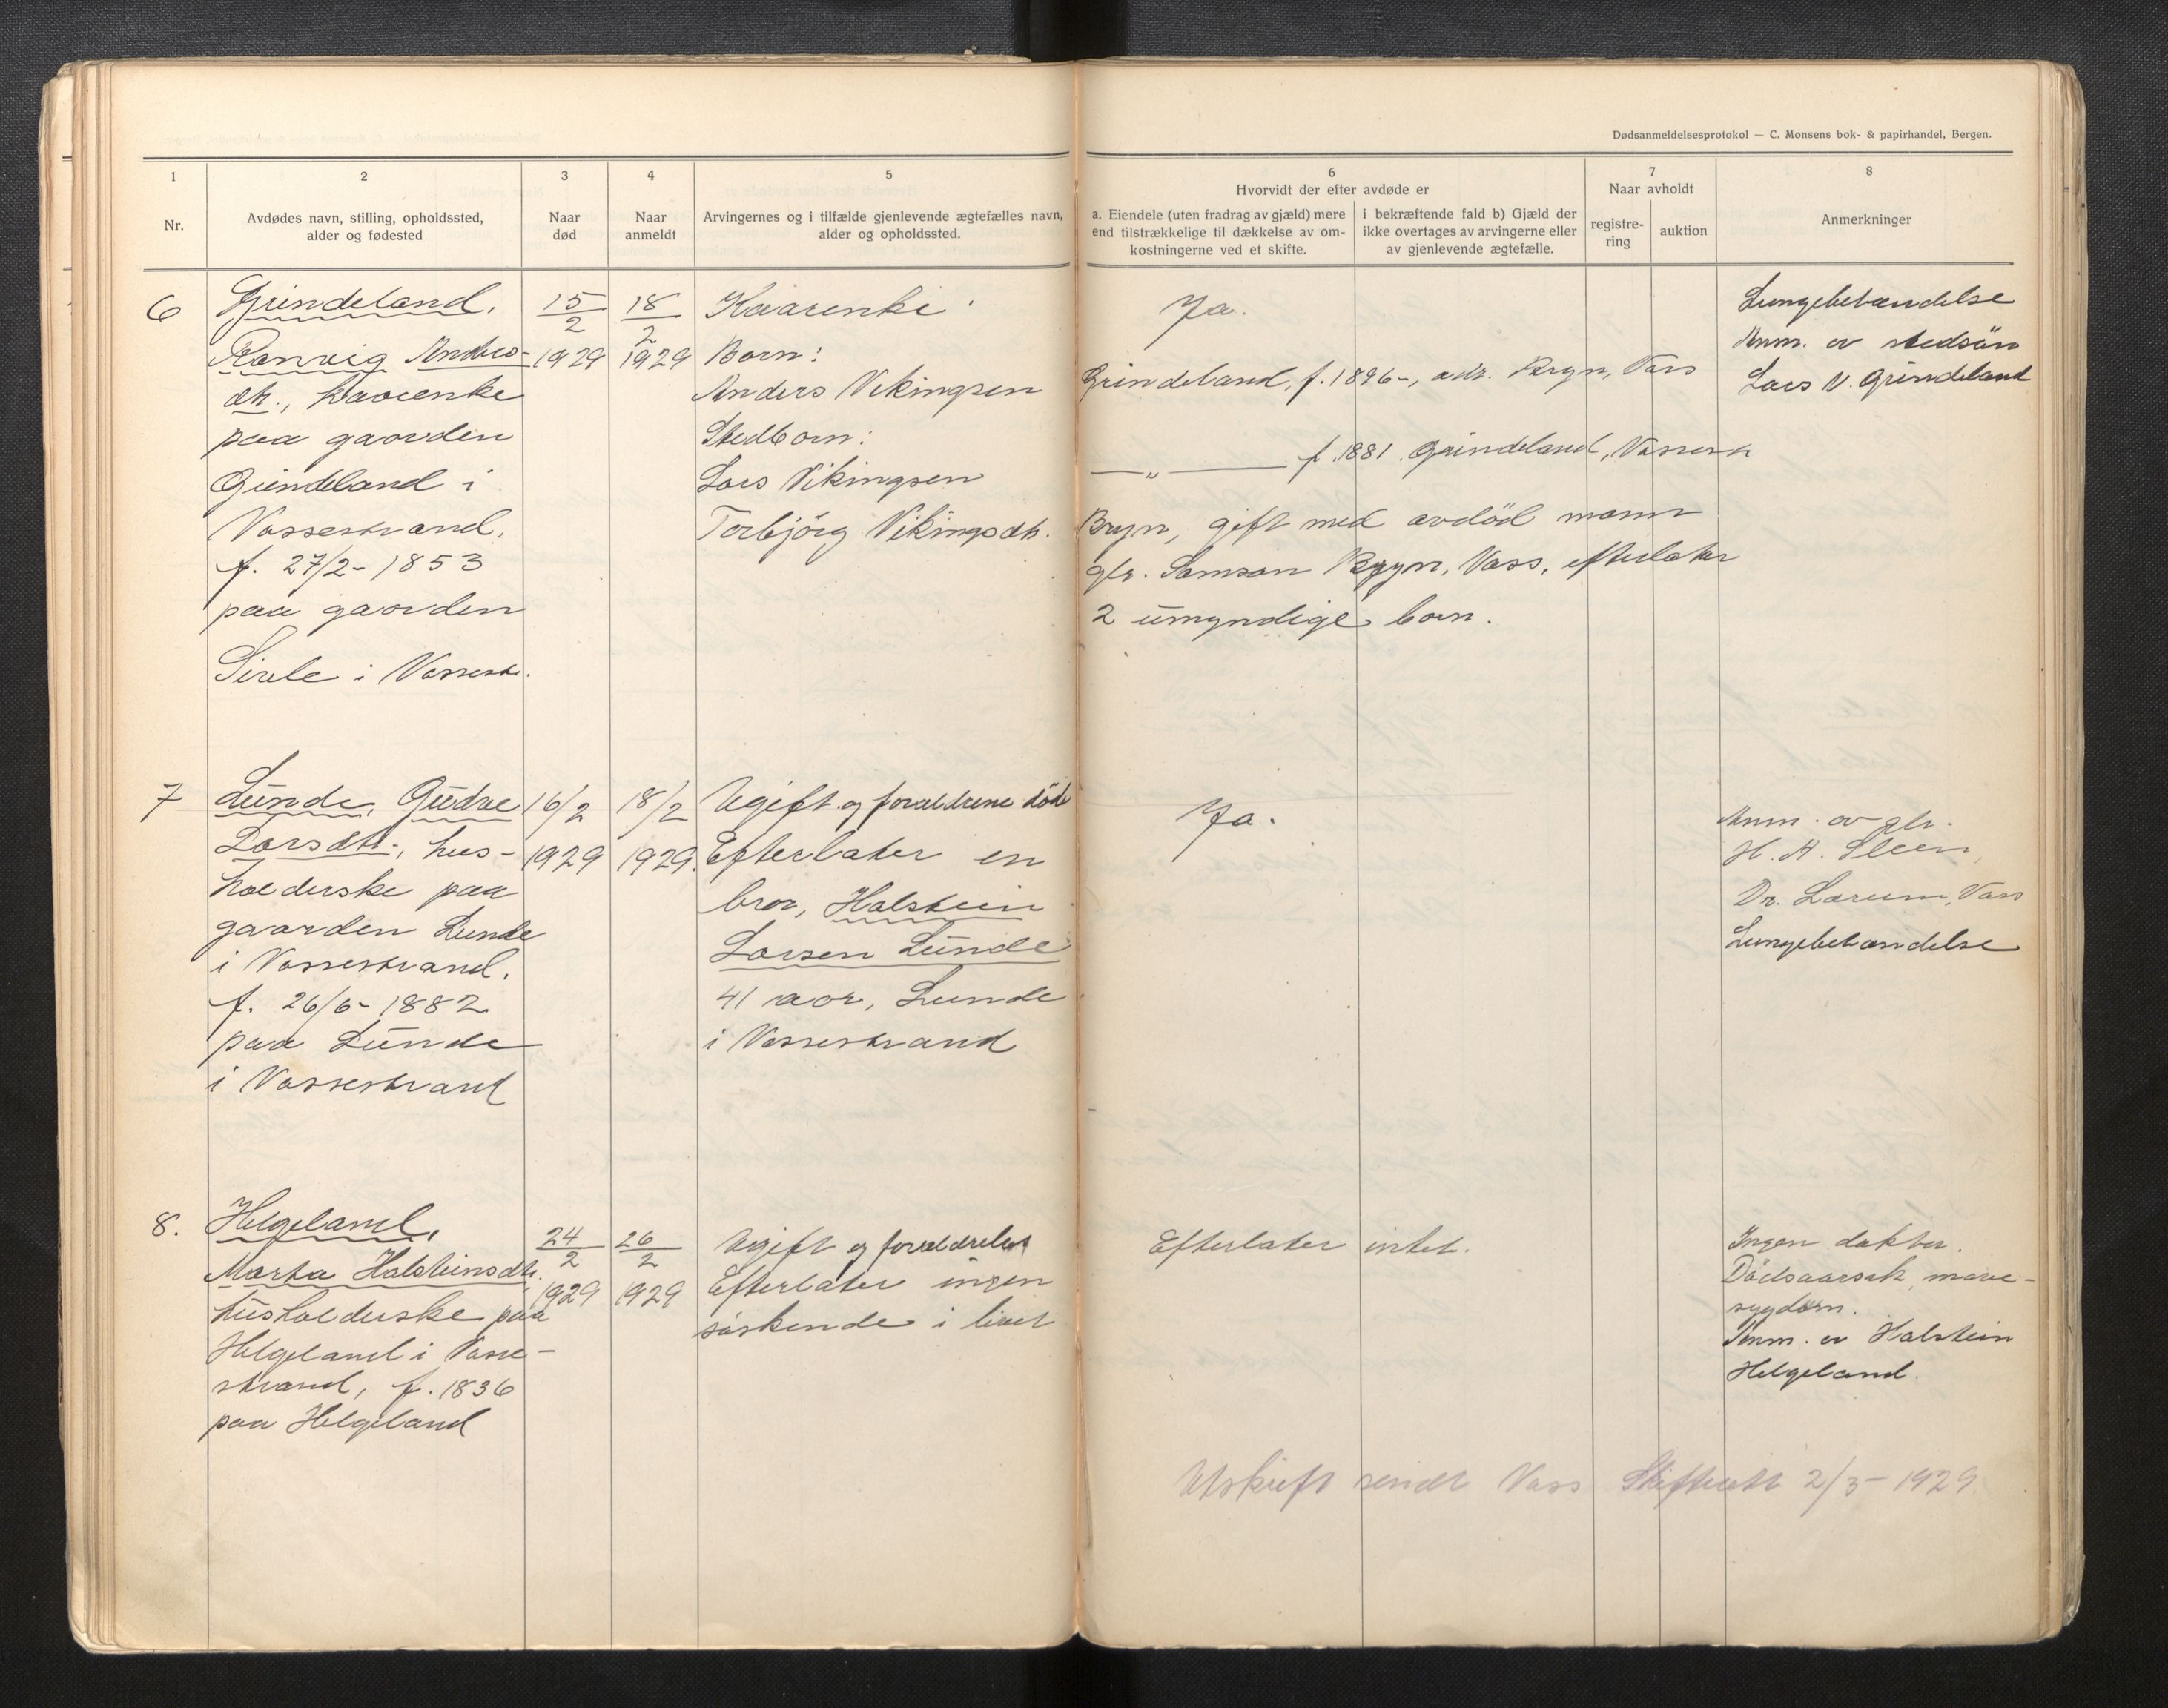 Dødsanmeldelsesprotokol — C. Monsens bok- & papirhandel, Bergen.
1 2 3 4 5 6 7 8
Nr.
Avdødes navn, stilling, opholdssted,
alder og fødested
Naar
død
Naar
anmeldt
Arvingernes og i tilfælde gjenlevende ægtefælles navn,
alder og opholdssted.
Hvorvidt der efter avdøde er
a. Eiendele (uten fradrag av gjæld) mere
end tilstrækkelige til dækkelse av om-
kostningerne ved et skifte.
i bekræftende fald b) Gjæld der
ikke overtages av arvingerne eller
av gjenlevende ægtefælle.
Naar avholdt
registre-
ring
auktion
Anmerkninger
6
Grindeland,
Ranvig Anders-
dtr., kaarenke
paa gaarden
Grindeland i
Vossestrand.
f. 27/2 - 1853
paa gaarden
Sivle i Vossestr.
15/2
1929
18/2
1929
Kaarenke.
Born:
Anders Vikingsen
Stedborn:
Lars Vikingsen
Torbjörg Vikingsdtr.
Ja.
Grindeland, f. 1896-, adr. Bryn, Voss
—„— f. 1881. Grindeland, Vossestr
Bryn, gift med avdöd mann
gbr. Samson Bryn, Voss, efterlater
2 umyndige born.
Lungebetændelse
Anm. av stedsön
Lars V. Grindeland
7
Lunde, Gudve
Larsdtr., hus-
holderske paa
gaarden Lunde
i Vossestrand.
f. 26/6 - 1882
paa Lunde
i Vossestrand
16/2
1929
18/2
1929.
Ugift og forældrene döde
Efterlater en
bror, Halstein
Larsen Lunde
41 aar, Lunde
i Vossestrand
Ja.
Anm. av gbr.
H. A. Sleen,
Dr. Lærum, Voss
Lungebetændelse
8.
Helgeland,
Marta Halsteinsdtr.
husholderske paa
Helgeland i Vosse-
strand, f. 1836
paa Helgeland
24/2
1929
26/2
1929
Ugift og forældreløs
Efterlater ingen
söskende i livet
Efterlater intet.
Ingen doktor.
Dödsaarsak, mave-
sygdom.
Anm. av Halstein
Helgeland.
Utskrift sendt Voss Skifterett 2/3 - 1929.